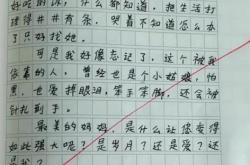 好吃的饭，什么都知道，把生活打
理得井井有条，哭着不知道怎么办
了只好找她。
可是我好像忘记了，这个被我
依靠的人，曾经也是个小姑娘，怕
黑，也爱掉眼泪，笨手笨脚，还会被
针扎到手。
最美的妈妈，是什么让您变得
如此强大呢？是岁月？还是爱？还
是我？